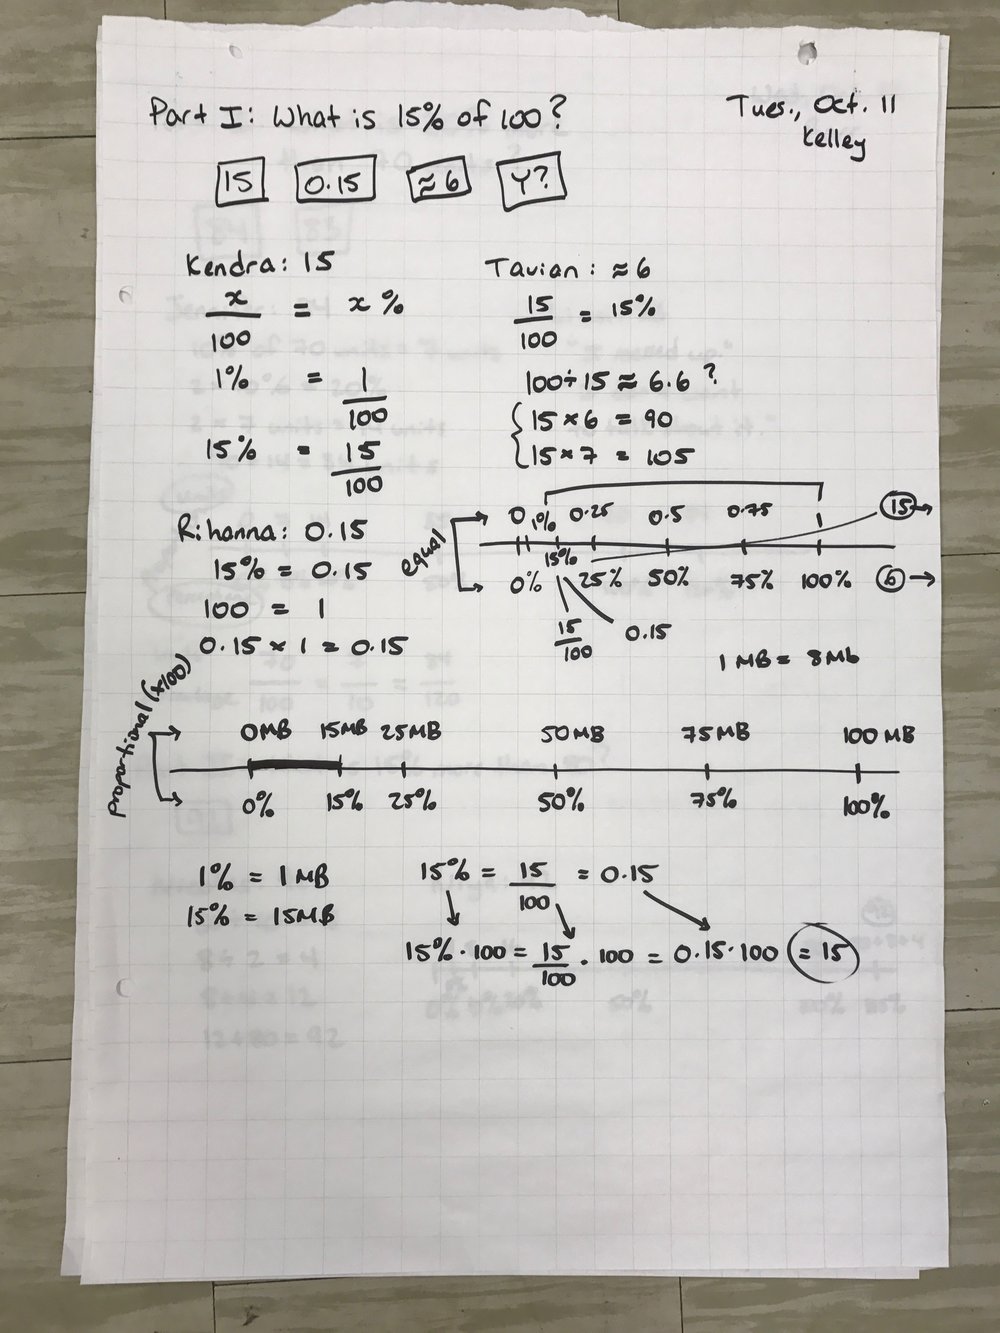 Part I: What is 15% of 100?
Tues., Oct. 11
Kelley
15 0.15 ≈6 Y?
Kendra: 15
x/100 = x%
1% = 1/100
15% = 15/100
Tavian: ≈6
15/100 = 15%
100÷15 ≈ 6.6?
15×6 = 90
15×7 = 105
Rihanna: 0.15
15% = 0.15
100 = 1
0.15 × 1 = 0.15
equal
0 1% 0.25 0.5 0.75 15
0% 15% 25% 50% 75% 100% 6
15/100 0.15
1 MB = 8Mb
proportional (×100)
0MB 15MB 25MB 50MB 75MB 100MB
0% 15% 25% 50% 75% 100%
1% = 1MB
15% = 15MB
15% = 15/100 = 0.15
15%·100 = 15/100·100 = 0.15·100 = 15